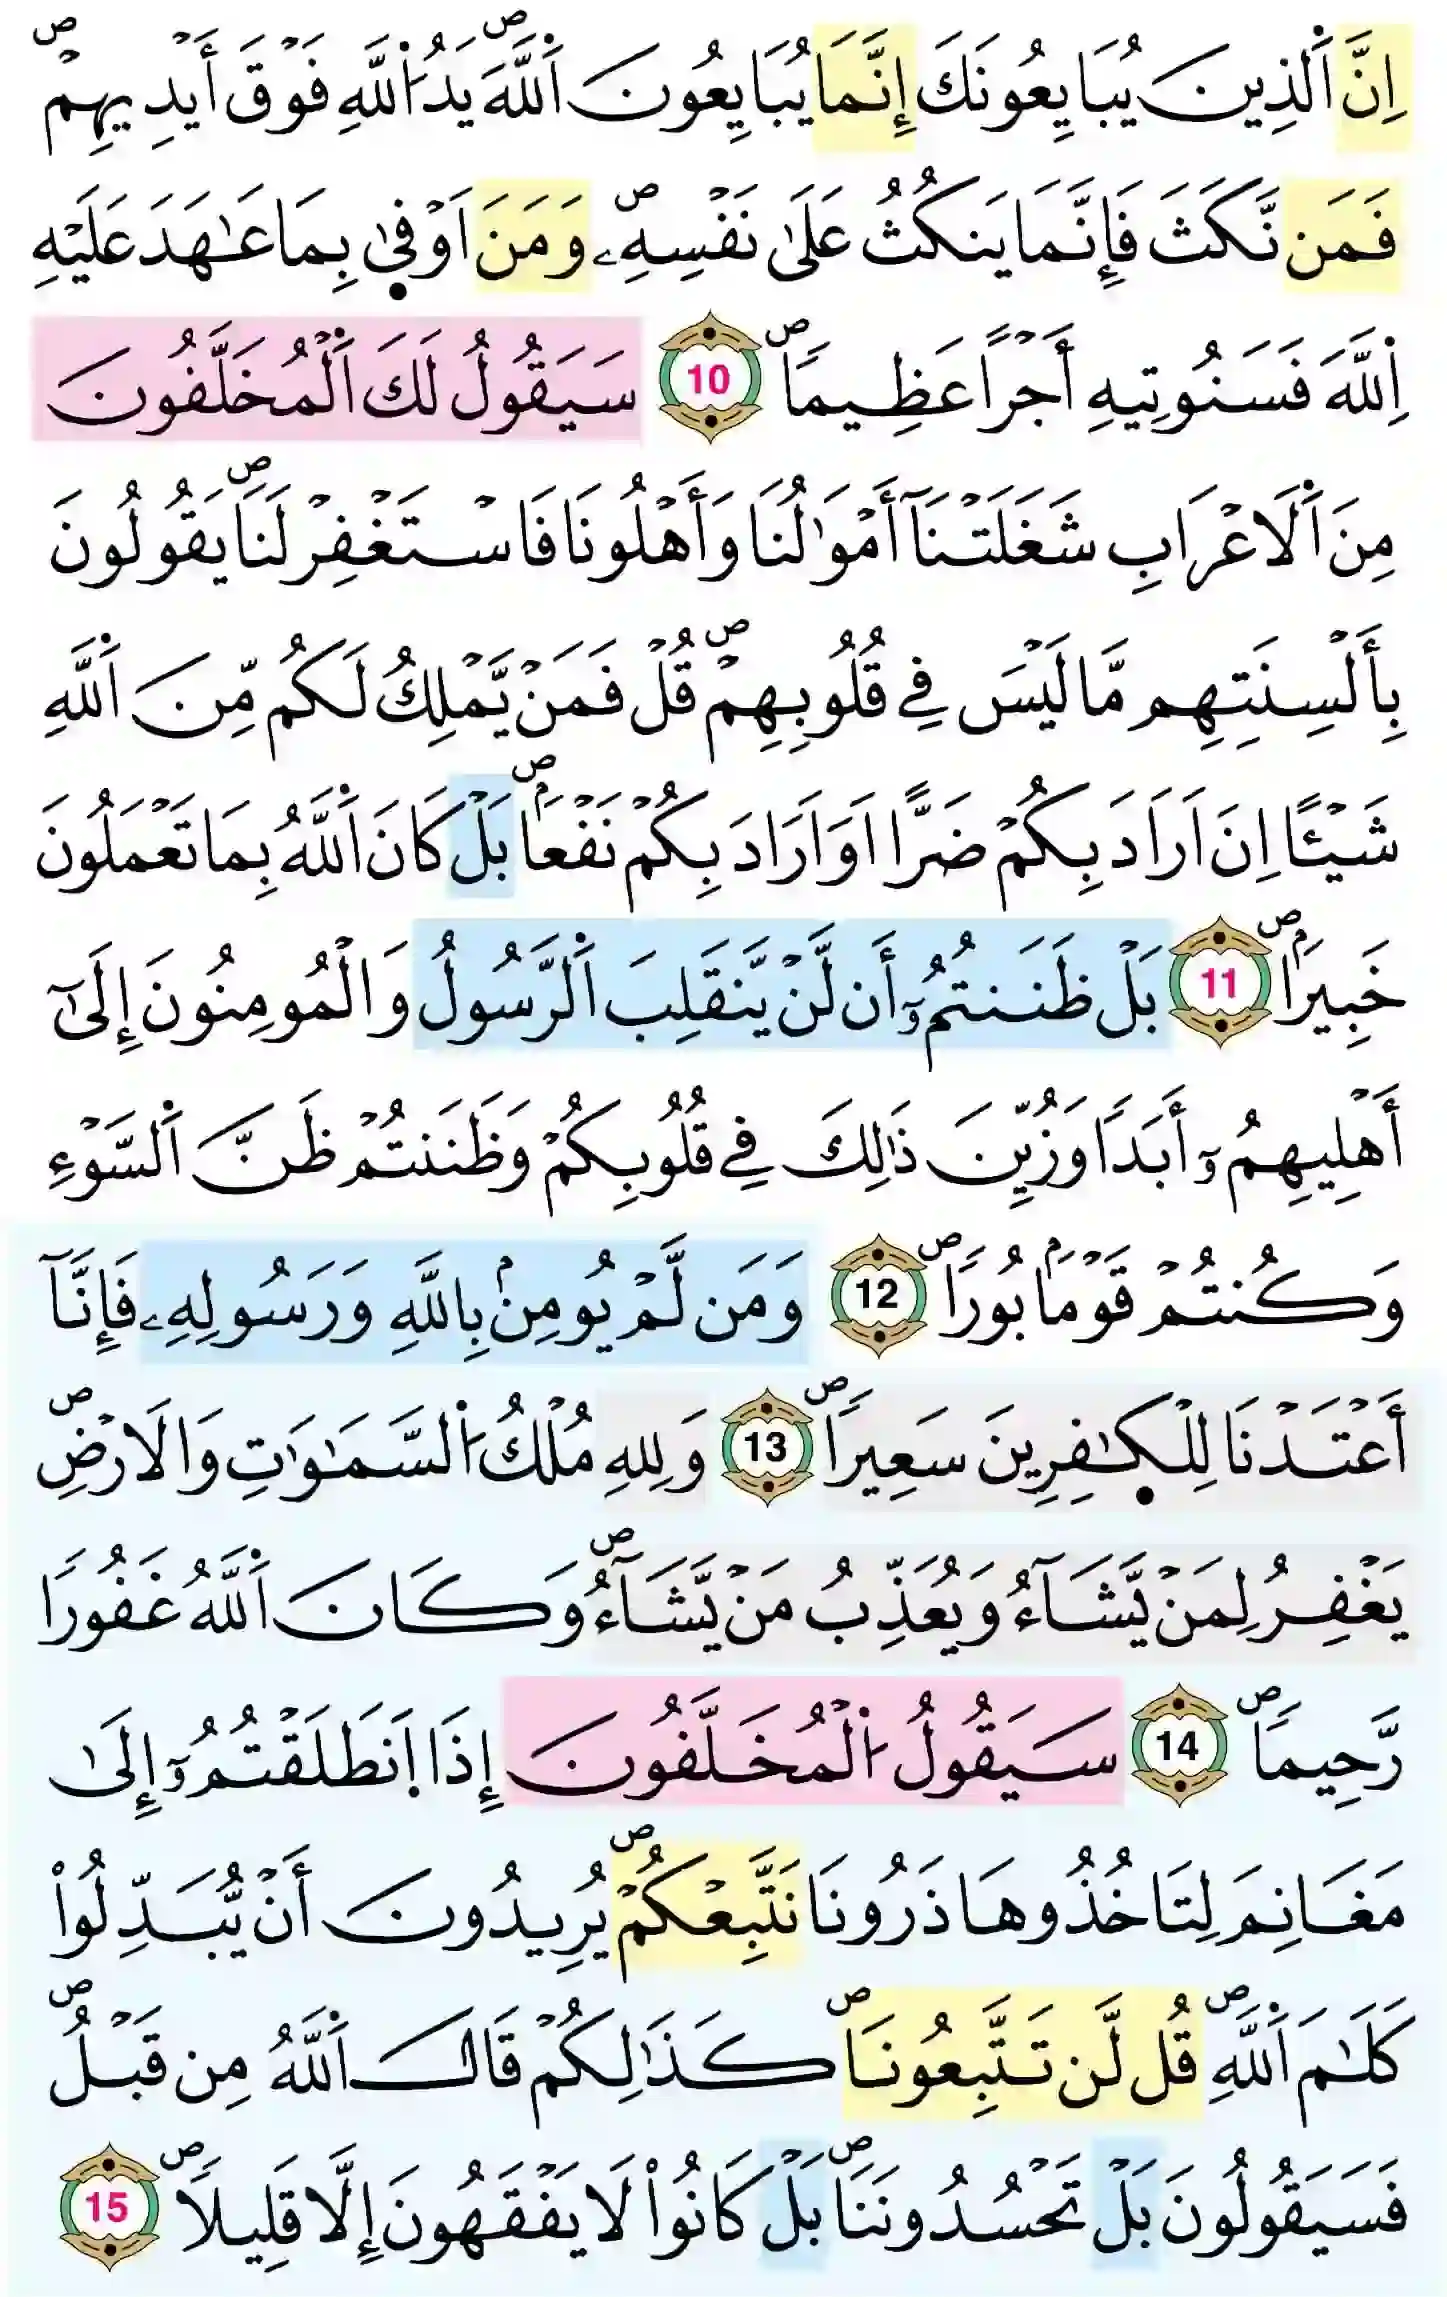 اِنَّ اَ۬لذِينَ يُبَايِعُونَكَ إِنَّمَا يُبَايِعُونَ اَ۬للَّهَۖ يَدُ اُ۬للَّهِ فَوْقَ أَيْدِيهِمْۖ
فَمَن نَّكَثَ فَإِنَّمَا يَنكُثُ عَلَىٰ نَفْسِهِۦۖ وَمَنَ اَوْف۪ىٰ بِمَا عَٰهَدَ عَلَيْهِ
اِ۬للَّهَ فَسَنُوتِيهِ أَجْراً عَظِيماٗۖ 10 سَيَقُولُ لَكَ اَ۬لْمُخَلَّفُونَ
مِنَ اَ۬لَاعْرَابِ شَغَلَتْنَآ أَمْوَٰلُنَا وَأَهْلُونَا فَاسْتَغْفِرْ لَنَاۖ يَقُولُونَ
بِأَلْسِنَتِهِم مَّا لَيْسَ فِے قُلُوبِهِمْۖ قُلْ فَمَنْ يَّمْلِكُ لَكُم مِّنَ اَ۬للَّهِ
شَيْـًٔا اِنَ اَرَادَ بِكُمْ ضَرّاً اَوَ اَرَادَ بِكُمْ نَفْعاَۢۖ بَلْ كَانَ اَ۬للَّهُ بِمَا تَعْمَلُونَ
خَبِيراَۢۖ 11 بَلْ ظَنَنتُمُۥٓ أَن لَّنْ يَّنقَلِبَ اَ۬لرَّسُولُ وَالْمُومِنُونَ إِلَىٰٓ
أَهْلِيهِمُۥٓ أَبَداٗ وَزُيِّنَ ذَٰلِكَ فِے قُلُوبِكُمْ وَظَنَنتُمْ ظَنَّ اَ۬لسَّوْءِ
وَكُنتُمْ قَوْماَۢ بُوراٗۖ 12 وَمَن لَّمْ يُومِنۢ بِاللَّهِ وَرَسُولِهِۦ فَإِنَّآ
أَعْتَدْنَا لِلْكٰ۪فِرِينَ سَعِيراٗۖ 13 وَلِلهِ مُلْكُ اُ۬لسَّمَٰوَٰتِ وَالَارْضِۖ
يَغْفِرُ لِمَنْ يَّشَآءُ وَيُعَذِّبُ مَنْ يَّشَآءُۖ وَكَانَ اَ۬للَّهُ غَفُوراٗ
رَّحِيماٗۖ 14 سَيَقُولُ اُ۬لْمُخَلَّفُونَ إِذَا اَ۪نطَلَقْتُمُۥٓ إِلَىٰ
مَغَانِمَ لِتَاخُذُوهَا ذَرُونَا نَتَّبِعْكُمْۖ يُرِيدُونَ أَنْ يُّبَدِّلُواْ
كَلَٰمَ اَ۬للَّهِۖ قُل لَّن تَتَّبِعُونَاۖ كَذَٰلِكُمْ قَالَ اَ۬للَّهُ مِن قَبْلُۖ
فَسَيَقُولُونَ بَلْ تَحْسُدُونَنَاۖ بَلْ كَانُواْ لَا يَفْقَهُونَ إِلَّا قَلِيلاٗۖ 15